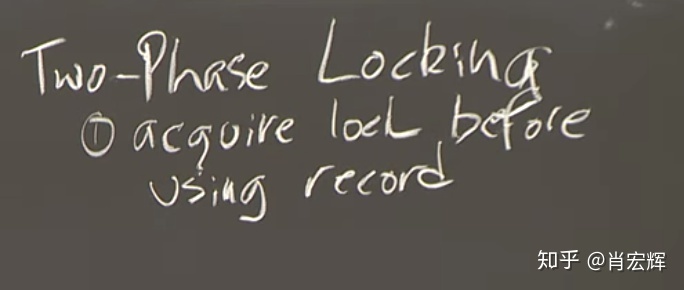 Two-Phase Locking
① acquire lock before
using record
知乎 @肖宏辉